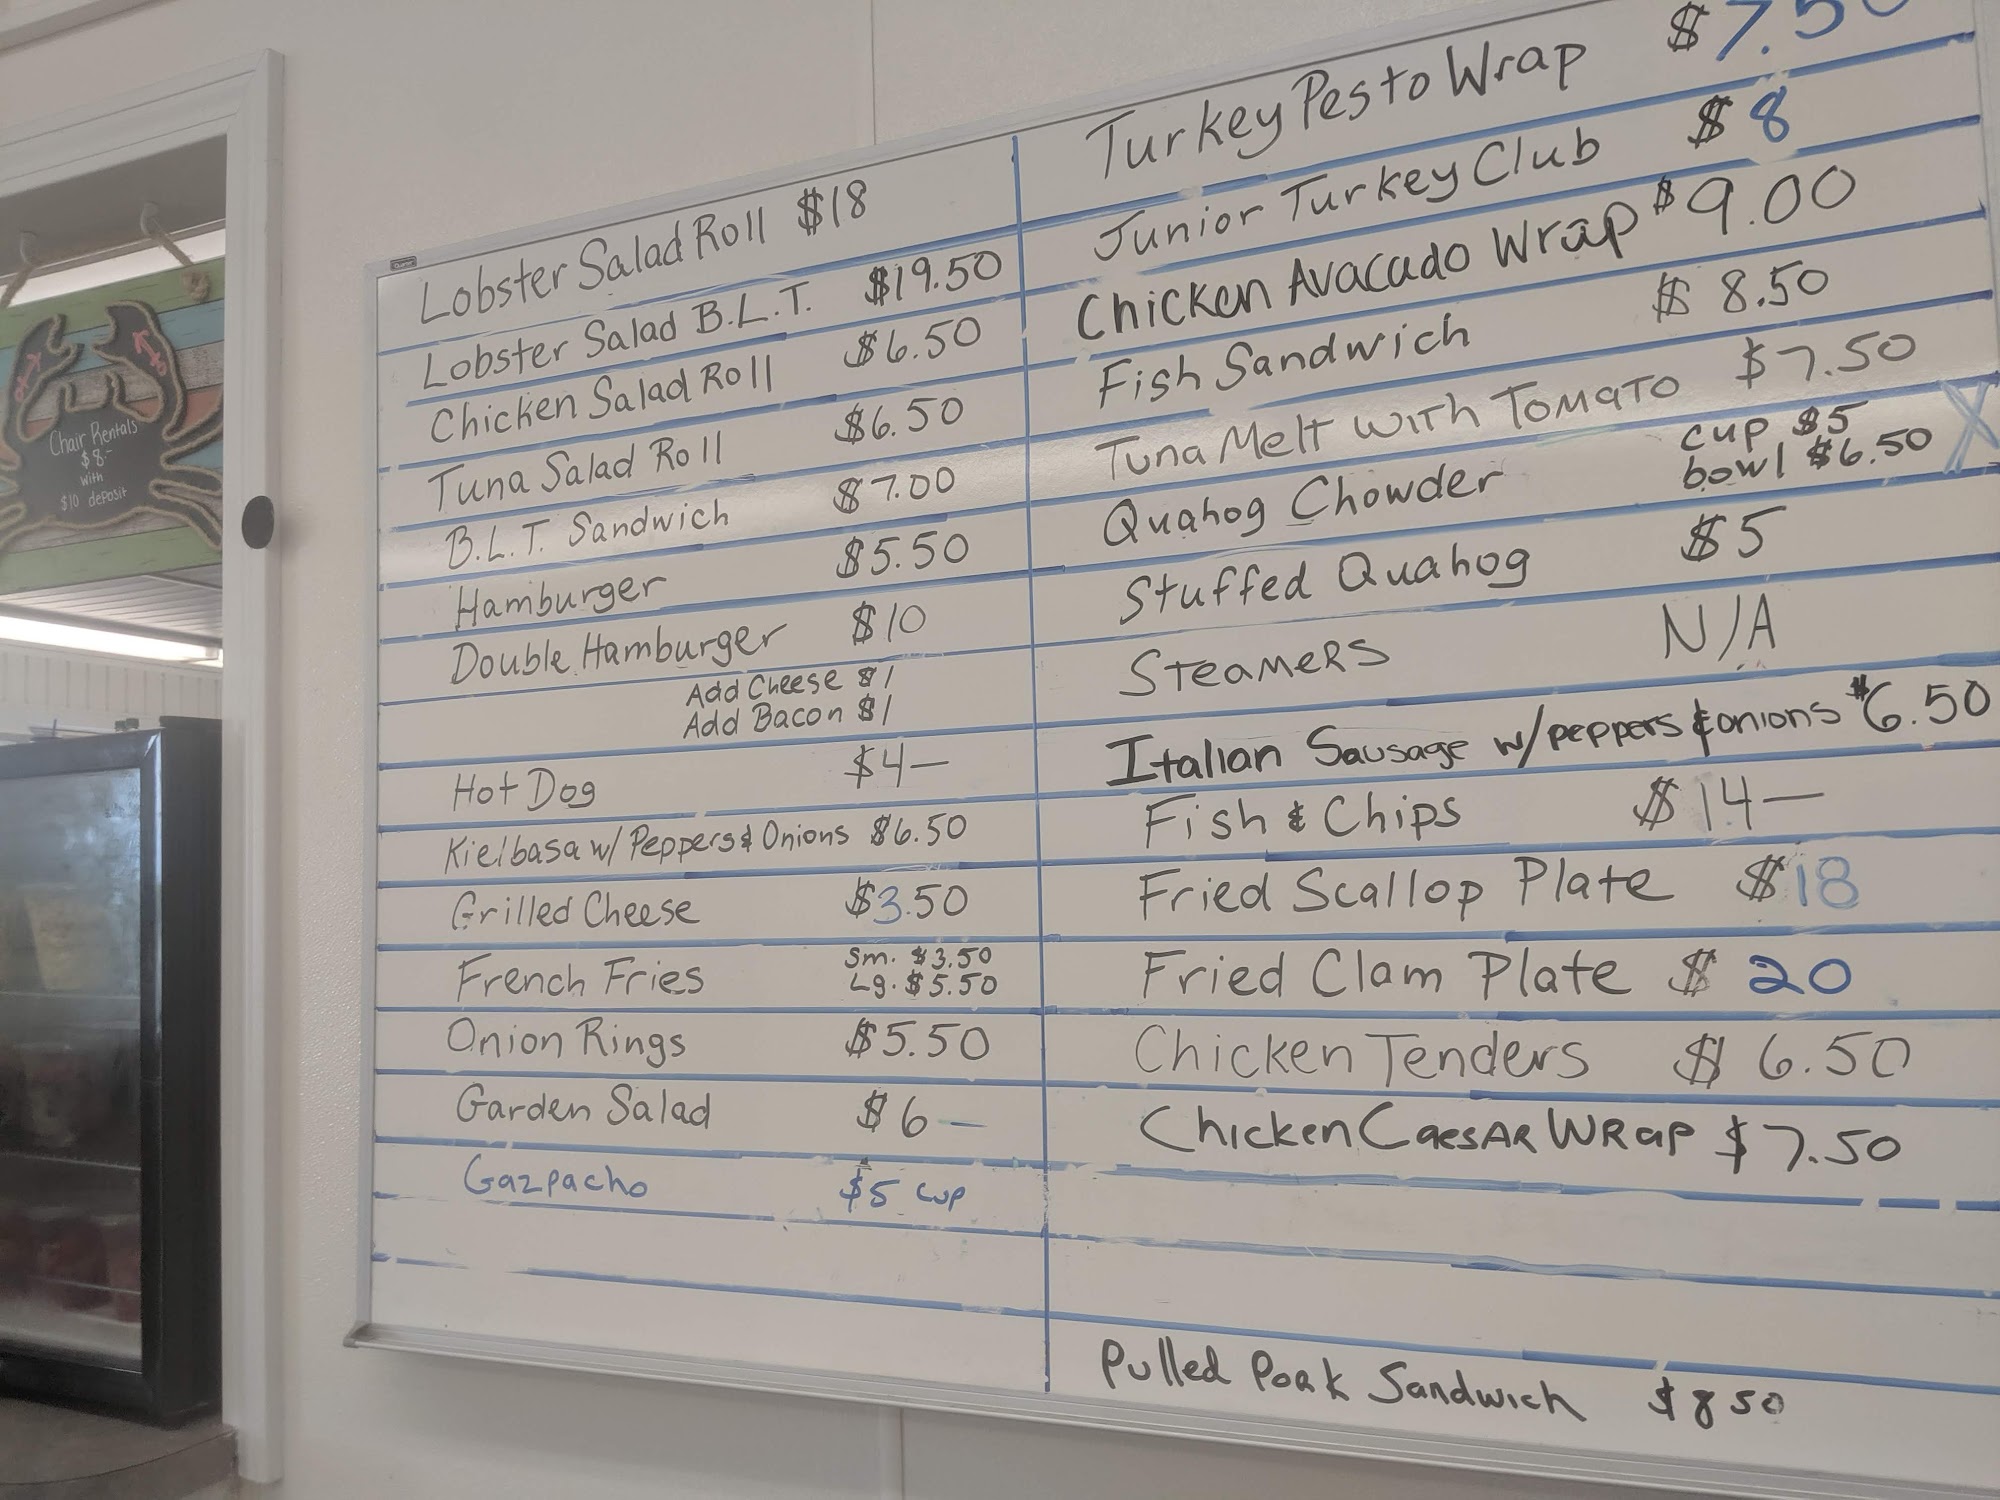 Chair Rentals
$8-
with
$10 deposit
Lobster Salad Roll $18
Lobster Salad B.L.T. $19.50
Chicken Salad Roll $6.50
Tuna Salad Roll $6.50
B.L.T. Sandwich $7.00
Hamburger $5.50
Double Hamburger $10
Add Cheese $1
Add Bacon $1
Hot Dog $4—
Kielbasa w/ Peppers & Onions $6.50
Grilled Cheese $3.50
French Fries Sm. $3.50
Lg. $5.50
Onion Rings $5.50
Garden Salad $6—
Gazpacho $5 cup
Turkey Pesto Wrap $7.50
Junior Turkey Club $8
Chicken Avacado Wrap $9.00
Fish Sandwich $8.50
Tuna Melt with Tomato $7.50
Quahog Chowder cup $5
bowl $6.50 X
Stuffed Quahog $5
Steamers N/A
Italian Sausage w/peppers & onions $6.50
Fish & Chips $14—
Fried Scallop Plate $18
Fried Clam Plate $20
Chicken Tenders $6.50
Chicken Caesar Wrap $7.50
Pulled Pork Sandwich $8 50